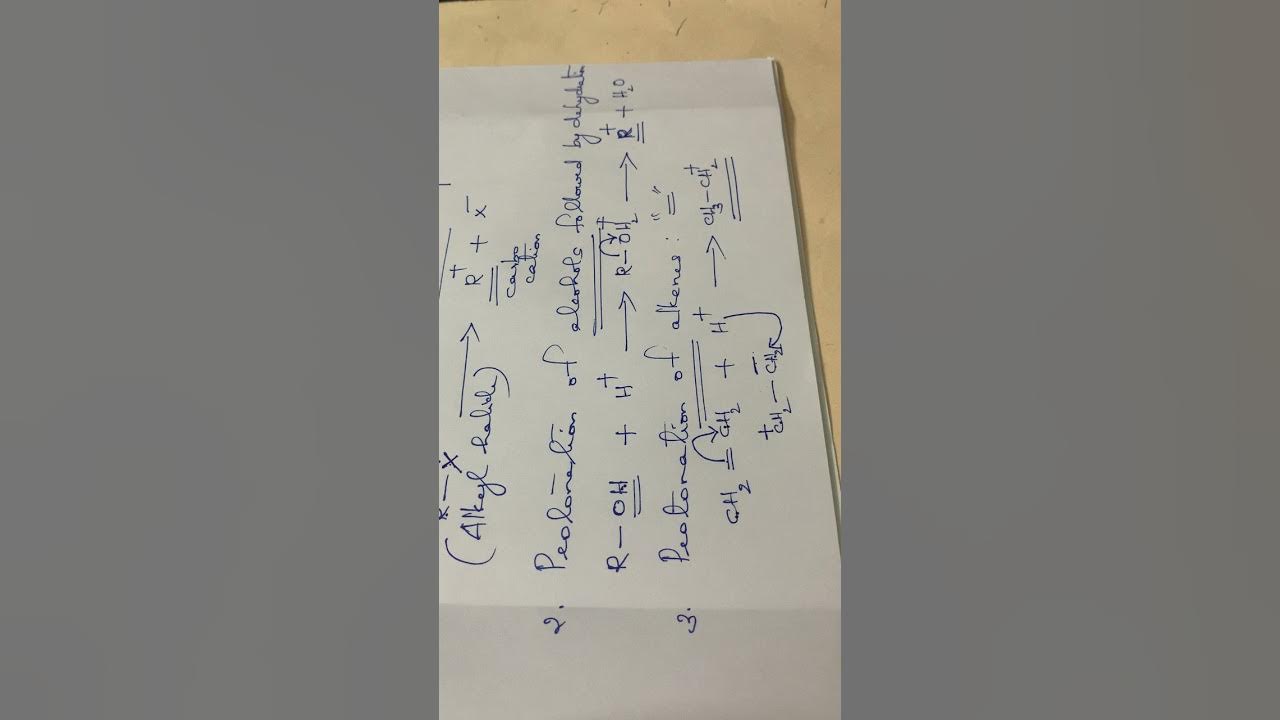 R — X
(Alkyl halide) ⟶ R⁺ + X⁻
carbo
cation
2. Protonation of alcohols followed by dehydration
R — OH + H⁺ ⟶ R — OH₂⁺ ⟶ R⁺ + H₂O
3. Protonation of alkenes : " = "
CH₂ = CH₂ + H⁺ ⟶ CH₃ — CH₂⁺
⁺CH₂ — C̄H₂